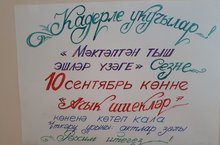 Кадерле укучылар!
"Мәктәптән тыш
эшләр үзәге" Сезне
10 сентябрь көнне
"Ачык ишекләр"
көненә көтеп кала
Үткәрү урыны: актлар залы
Рәхим итегез!